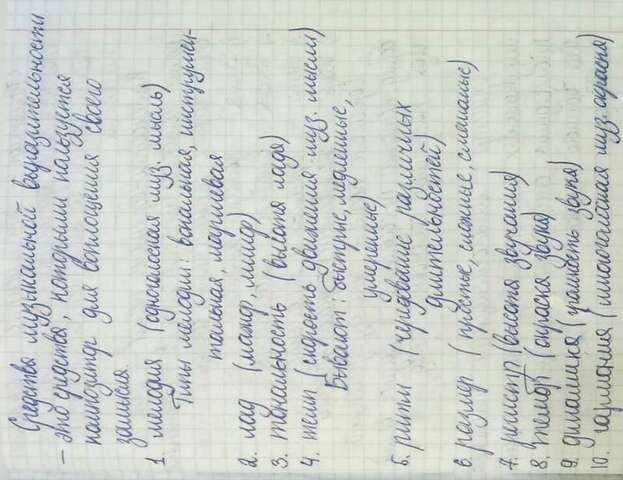 Средства музыкальной выразительности
– это средства, которыми пользуется
композитор для воплощения своего
замысла.
1. мелодия (одноголосная муз. мысль)
Типы мелодии: вокальная, инструмен-
тальная, 
2. лад (мажор, минор)
3. тональность (высота лада)
4. темп (скорость движения муз. мысли)
Бывают: быстрые, медленные,
умеренные)
5. ритм (чередование различных
длительностей)
6. размер (простые, сложные, смешаные)
7. регистр (высота звучания)
8. тембр (окраска звука)
9. динамика (громкость звука)
10. гармония (многоголосная муз. окраска)